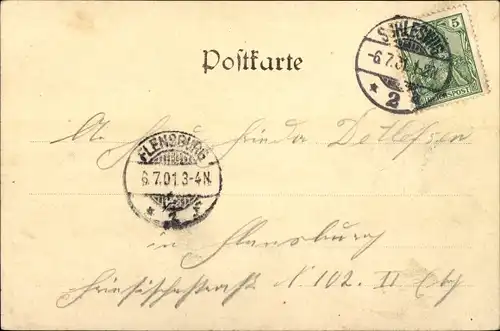 Postkarte
SCHLESWIG
5
-6.7.01. 1-2N
* 2 a
REICHSPOST
Frieda Detlefsen
FLENSBURG
6.7.01. 3-4N
* 2
in Flensburg
Friesischestraße N 102. II